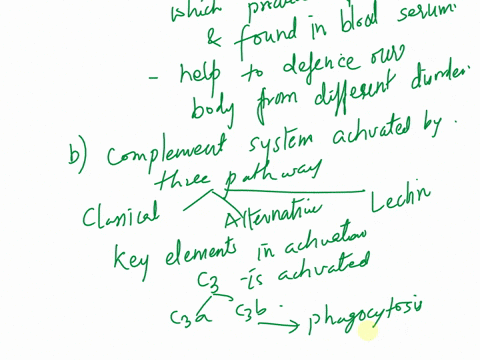 which
& found in blood serum.
- help to defence our
body from different
b) Complement system activated by.
three pathway
Classical Alternative Lectin
Key elements in activation
C3 - is activated
C3a C3b. → phagocytosis